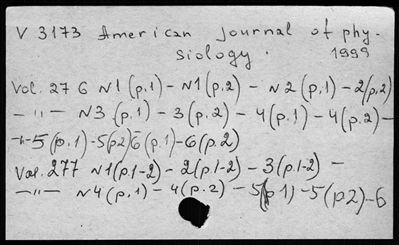 V 3173 American Journal of phy-
siology. 1999
Vol. 276 N1 (p.1) - N1 (p.2) - N2 (p.1) - 2(p.2)
- " - N3 (p.1) - 3(p.2) - 4(p.1) - 4(p.2) -
-"- 5(p.1) - 5(p2) 6(p.1) - 6(p.2)
Vol. 277 N1(p.1-2) - 2(p.1-2) - 3(p.1-2) -
- " - N4(p.1) - 4(p.2) - 5(p1) - 5(p2) - 6